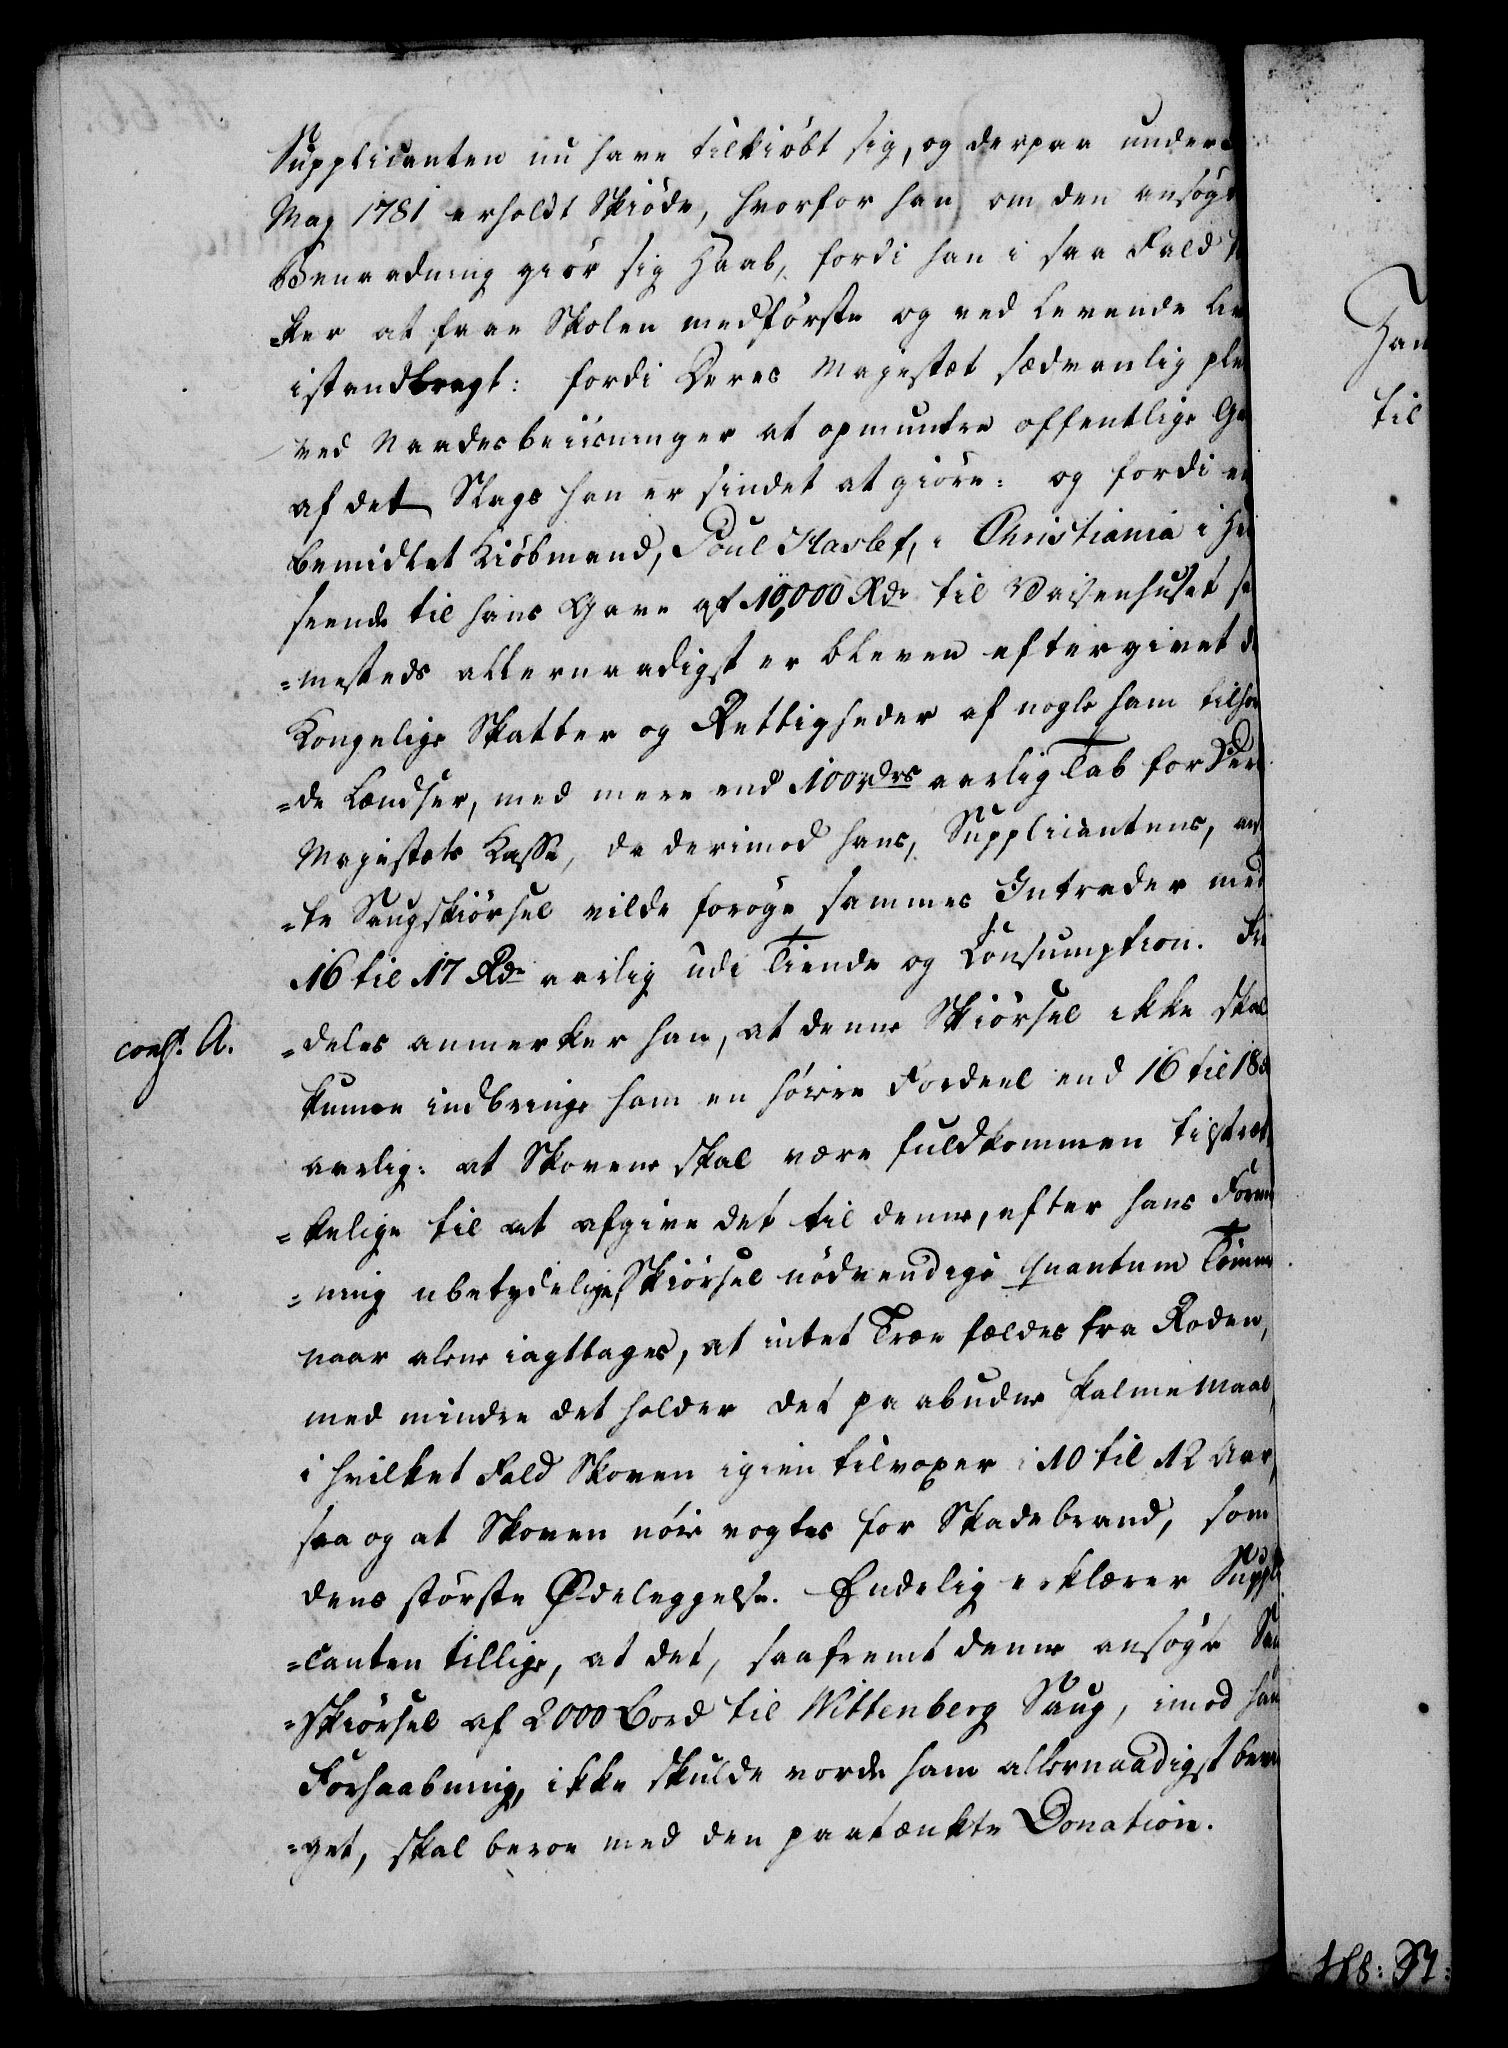 Supplicanten nu have tilkiöbt sig, og derpaa under
Maj 1781 erholdt Skiöde, hvorfor han om den ansögte
Benaadning giör sig Haab, fordi han i saa Fald
=ker at faae Skolen medförste og ved levende
istandbragt: fordi Deres Majestæt sædvanlig
ved Naadesbeviisninger at opmuntre offentlige
af det Slags han er sindet at giöre: og fordi
bemidlet Kiöbmand, Poul Haslef, i Christiania i
seende til hans Gave af 10,000 Rdr til Vaisenhuset
=mesteds allernaadigst er bleven eftergivet
Kongelige Skatter og Rettigheder af nogle ham
=de Lændser, med mere end 100 Rdrs aarlig Tab for
Majestæts Kasse, da derimod hans, Supplicantens,
=te Saugskiörsel vilde foröge sammes Intrader med
16 til 17 Rdr aarlig udi Tiende og Consumption.
=deles anmerker han, at denne Skiörsel ikke skal
conf. A.
kunne indbringe ham en höiere Fordeel end 16 til 18
aarlig: at Skovene skal være fuldkommen tilstræk
=kelige til at afgive det til denne, efter hans
=ning ubetydelige, Skiörsel nödvendige quantum Tömmer
naar alene iagttages, at intet Træe fældes fra Roden,
med mindre det holder det paabudne Palme Maal,
i hvilket Fald Skoven igien tilvoxer i 10 til 12 Aar,
saa og at Skoven nöie vogtes for Skadebrand, som
dens störste Ødeleggelse. Endelig erklærer Suppli
=canten tillige, at det, saafremt denne ansögte
=skiörsel af 2000 Bord til Wittenberg Saug, imod
Forhaabning, ikke skulde vorde ham allernaadigst
=get, skal beroe med den paatænkte Donation.
til